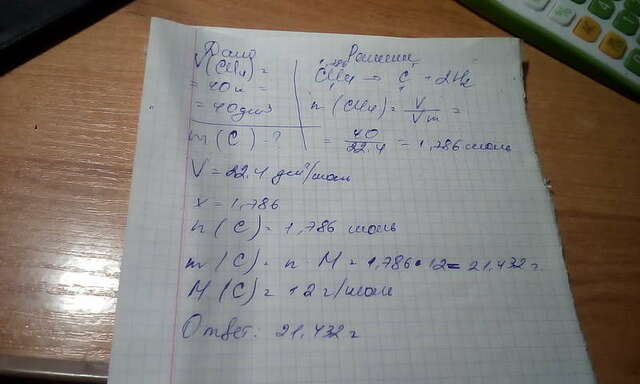 Дано
Решение
V(CH4) =
= 40л =
= 40 дм3
CH4 → C + 2H2
n(CH4) = V/Vm =
= 40/22.4 = 1,786 моль
m(C) - ?
V = 22.4 дм3/моль
x = 1,786
n(C) = 1,786 моль
m(C) = n · M = 1,786 · 12 = 21,432 г
M(C) = 12 г/моль
Ответ: 21,432 г